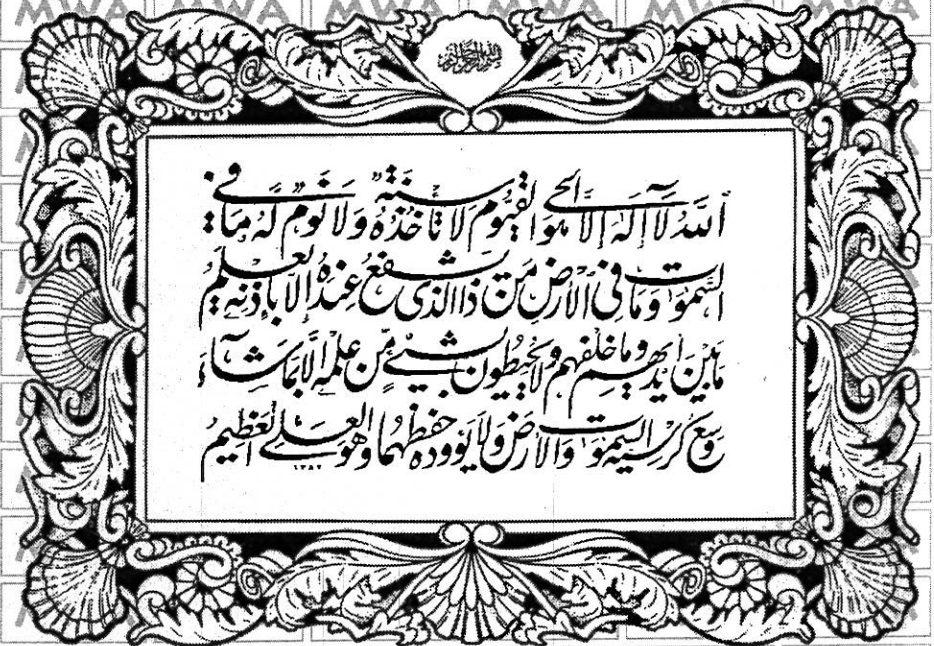 MWA MWA MWA MWA MWA MWA
بسم الله الرحمن الرحيم
ٱللَّهُ لَآ إِلَٰهَ إِلَّا هُوَ ٱلْحَىُّ ٱلْقَيُّومُ لَا تَأْخُذُهُۥ سِنَةٌ وَلَا نَوْمٌ لَّهُۥ مَا فِى
ٱلسَّمَٰوَٰتِ وَمَا فِى ٱلْأَرْضِ مَن ذَا ٱلَّذِى يَشْفَعُ عِندَهُۥٓ إِلَّا بِإِذْنِهِۦ يَعْلَمُ
مَا بَيْنَ أَيْدِيهِمْ وَمَا خَلْفَهُمْ وَلَا يُحِيطُونَ بِشَىْءٍ مِّنْ عِلْمِهِۦٓ إِلَّا بِمَا شَآءَ
وَسِعَ كُرْسِيُّهُ ٱلسَّمَٰوَٰتِ وَٱلْأَرْضَ وَلَا يَـُٔودُهُۥ حِفْظُهُمَا وَهُوَ ٱلْعَلِىُّ ٱلْعَظِيمُ
١٣٨٢